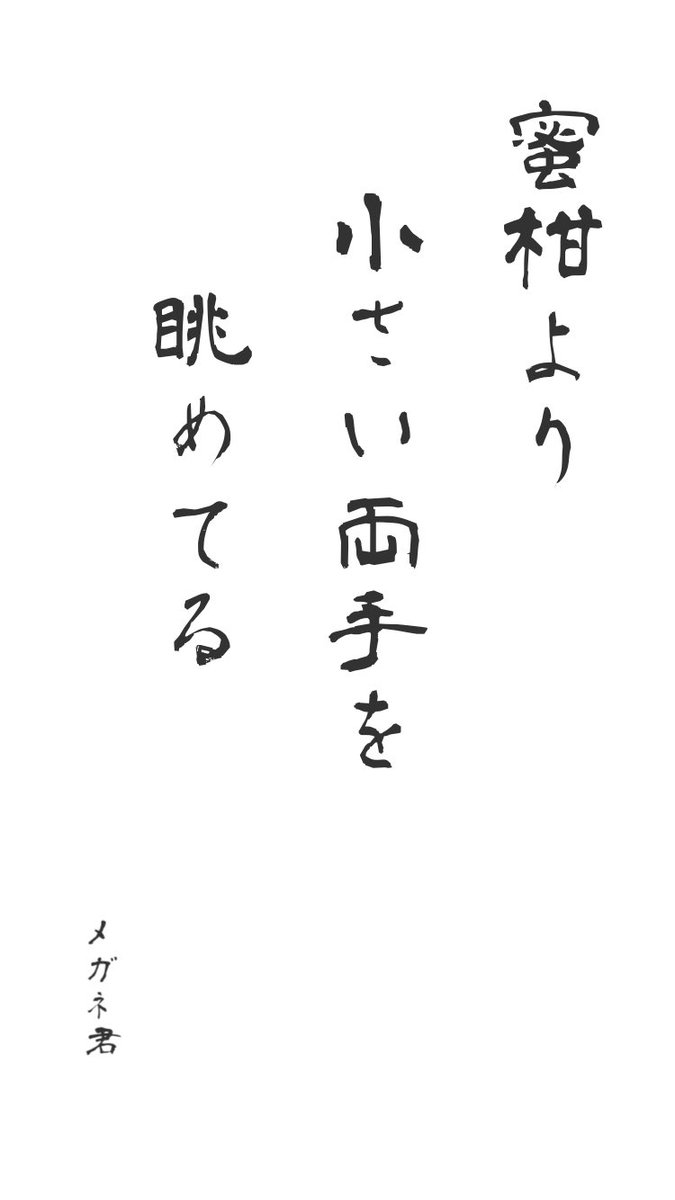 蜜柑より
小さい両手を
眺めてる
メガネ君